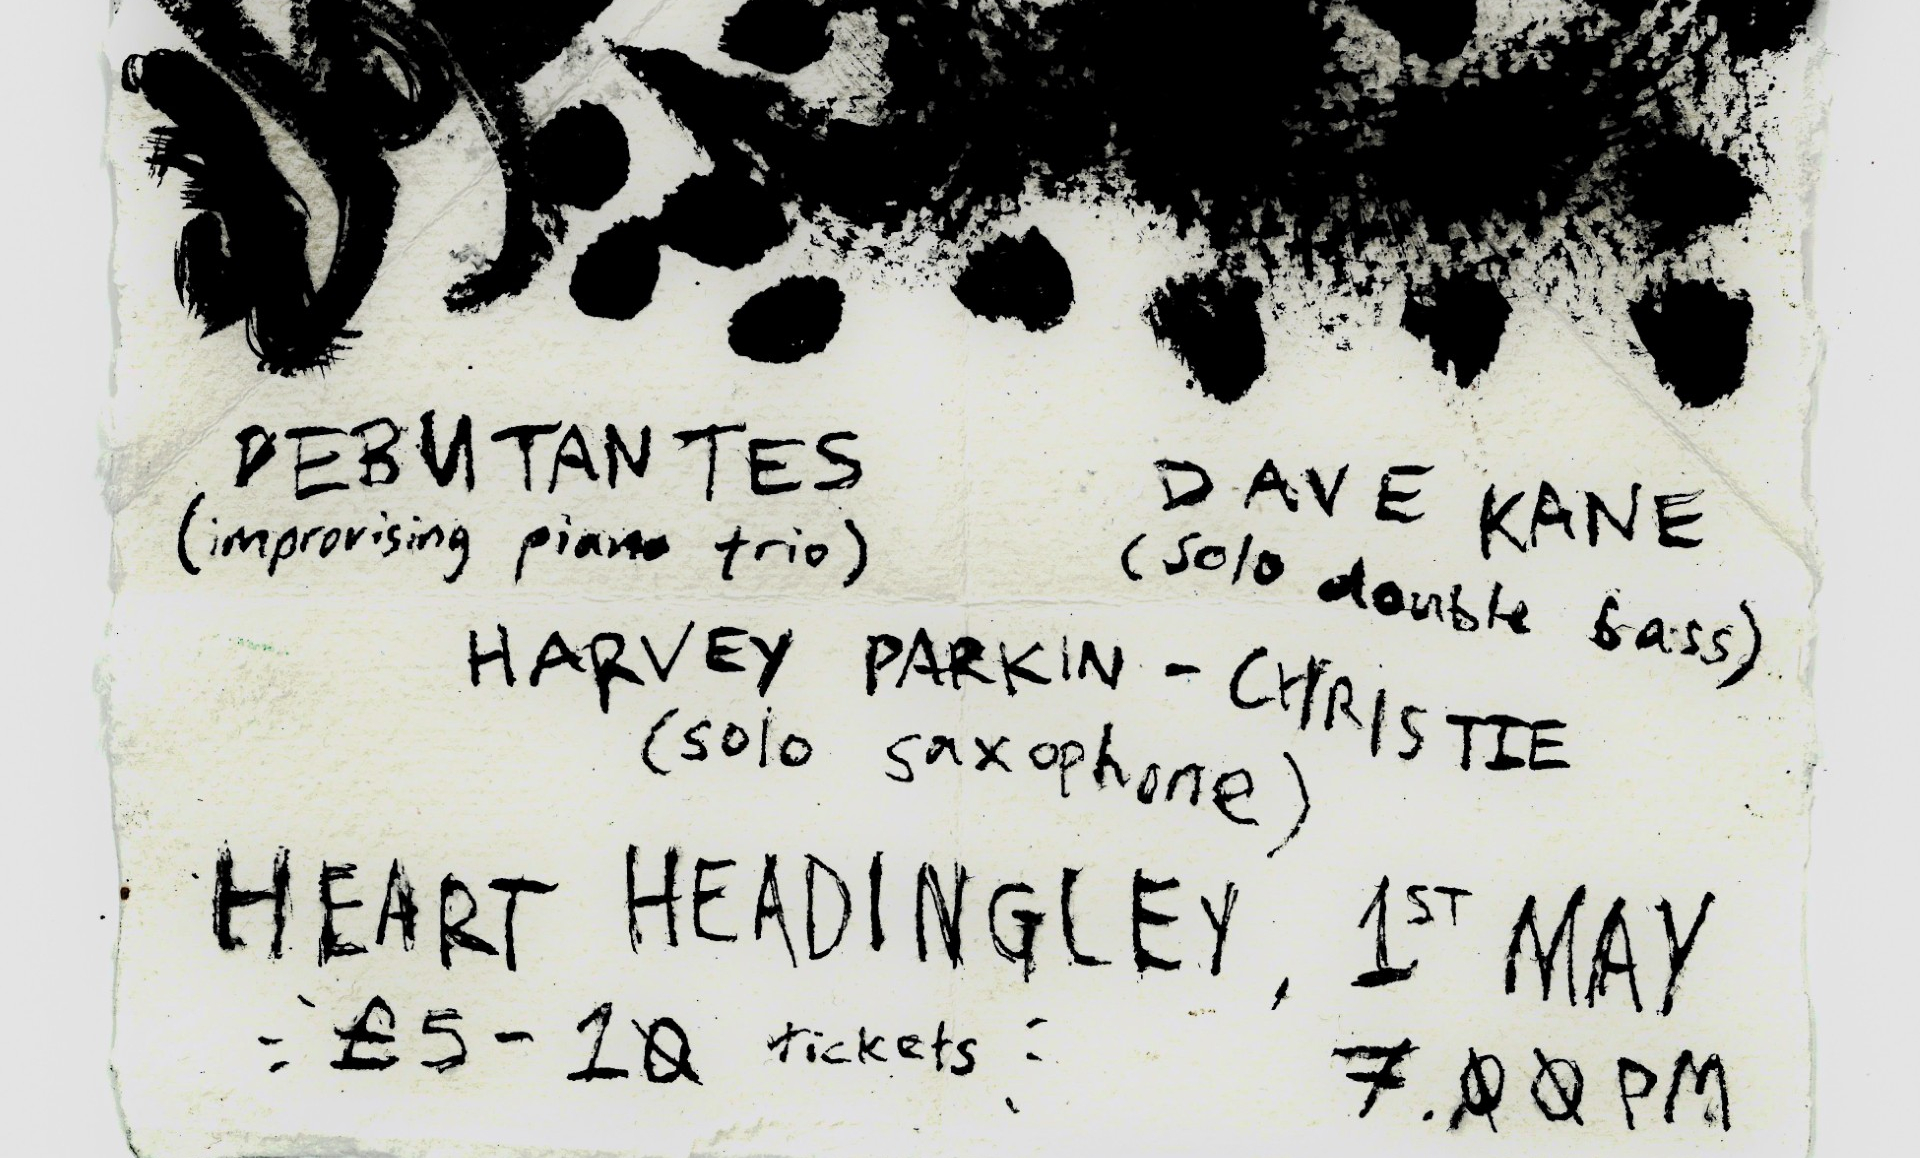 DEBUTANTES
(improvising piano trio)
DAVE KANE
(solo double bass)
HARVEY PARKIN-CHRISTIE
(solo saxophone)
HEART HEADINGLEY, 1ST MAY
£5-10 tickets
7.00PM